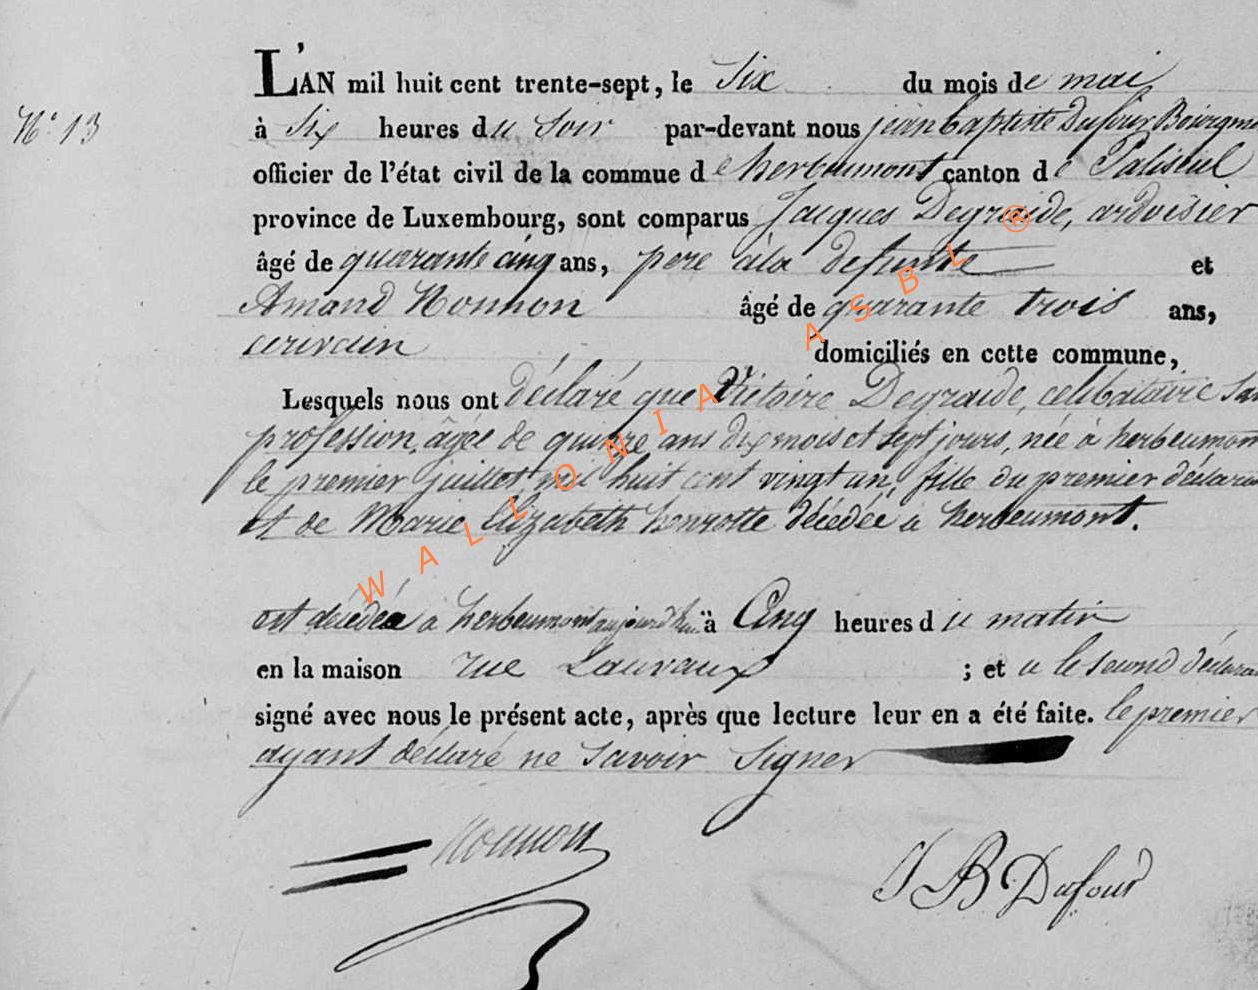 N° 13
L'AN mil huit cent trente-sept, le Six du mois de mai
à Six heures du Soir par-devant nous jean baptiste Dufour Bourgme
officier de l'état civil de la commue de herbeumont canton de Paliseul
province de Luxembourg, sont comparus Jacques Degraide, ardoisier
âgé de quarante cinq ans, pere à la defunte et
Amand Nonnon âgé de quarante trois ans,
ecrivain domiciliés en cette commune,
Lesquels nous ont déclaré que Victoire Degraide, celibataire San
profession, âgée de quinze ans dix mois et sept jours, née à herbeumont
le premier juillet mil huit cent vingt un, fille du premier déclara
et de Marie Elizabeth henrotte décédée à herbeumont.
est décédée à herbeumont aujourd'hui à Cinq heures du matin
en la maison rue Lauvaux ; et a le second déclara
signé avec nous le présent acte, après que lecture leur en a été faite. le premier
ayant déclaré ne Savoir Signer
Nonnon
J B Dufour
WALLONIA ASBL ®